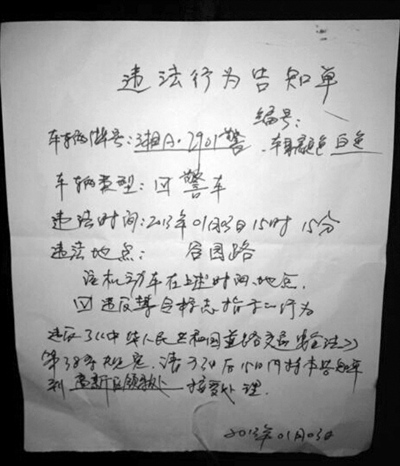 违法行为告知单
编号:
车辆牌号:湘A·2901警 车身颜色 白色
车辆类型:☑警车
违法时间:2013年01月03日15时15分
违法地点: 谷园路
该机动车在上述时间、地点,
☑违反禁令标志指示的行为
违反了《中华人民共和国道路交通安全法》
第38条规定,请于3日后15日内持本告知单
到高新区 接受处理.
2013年01月03日